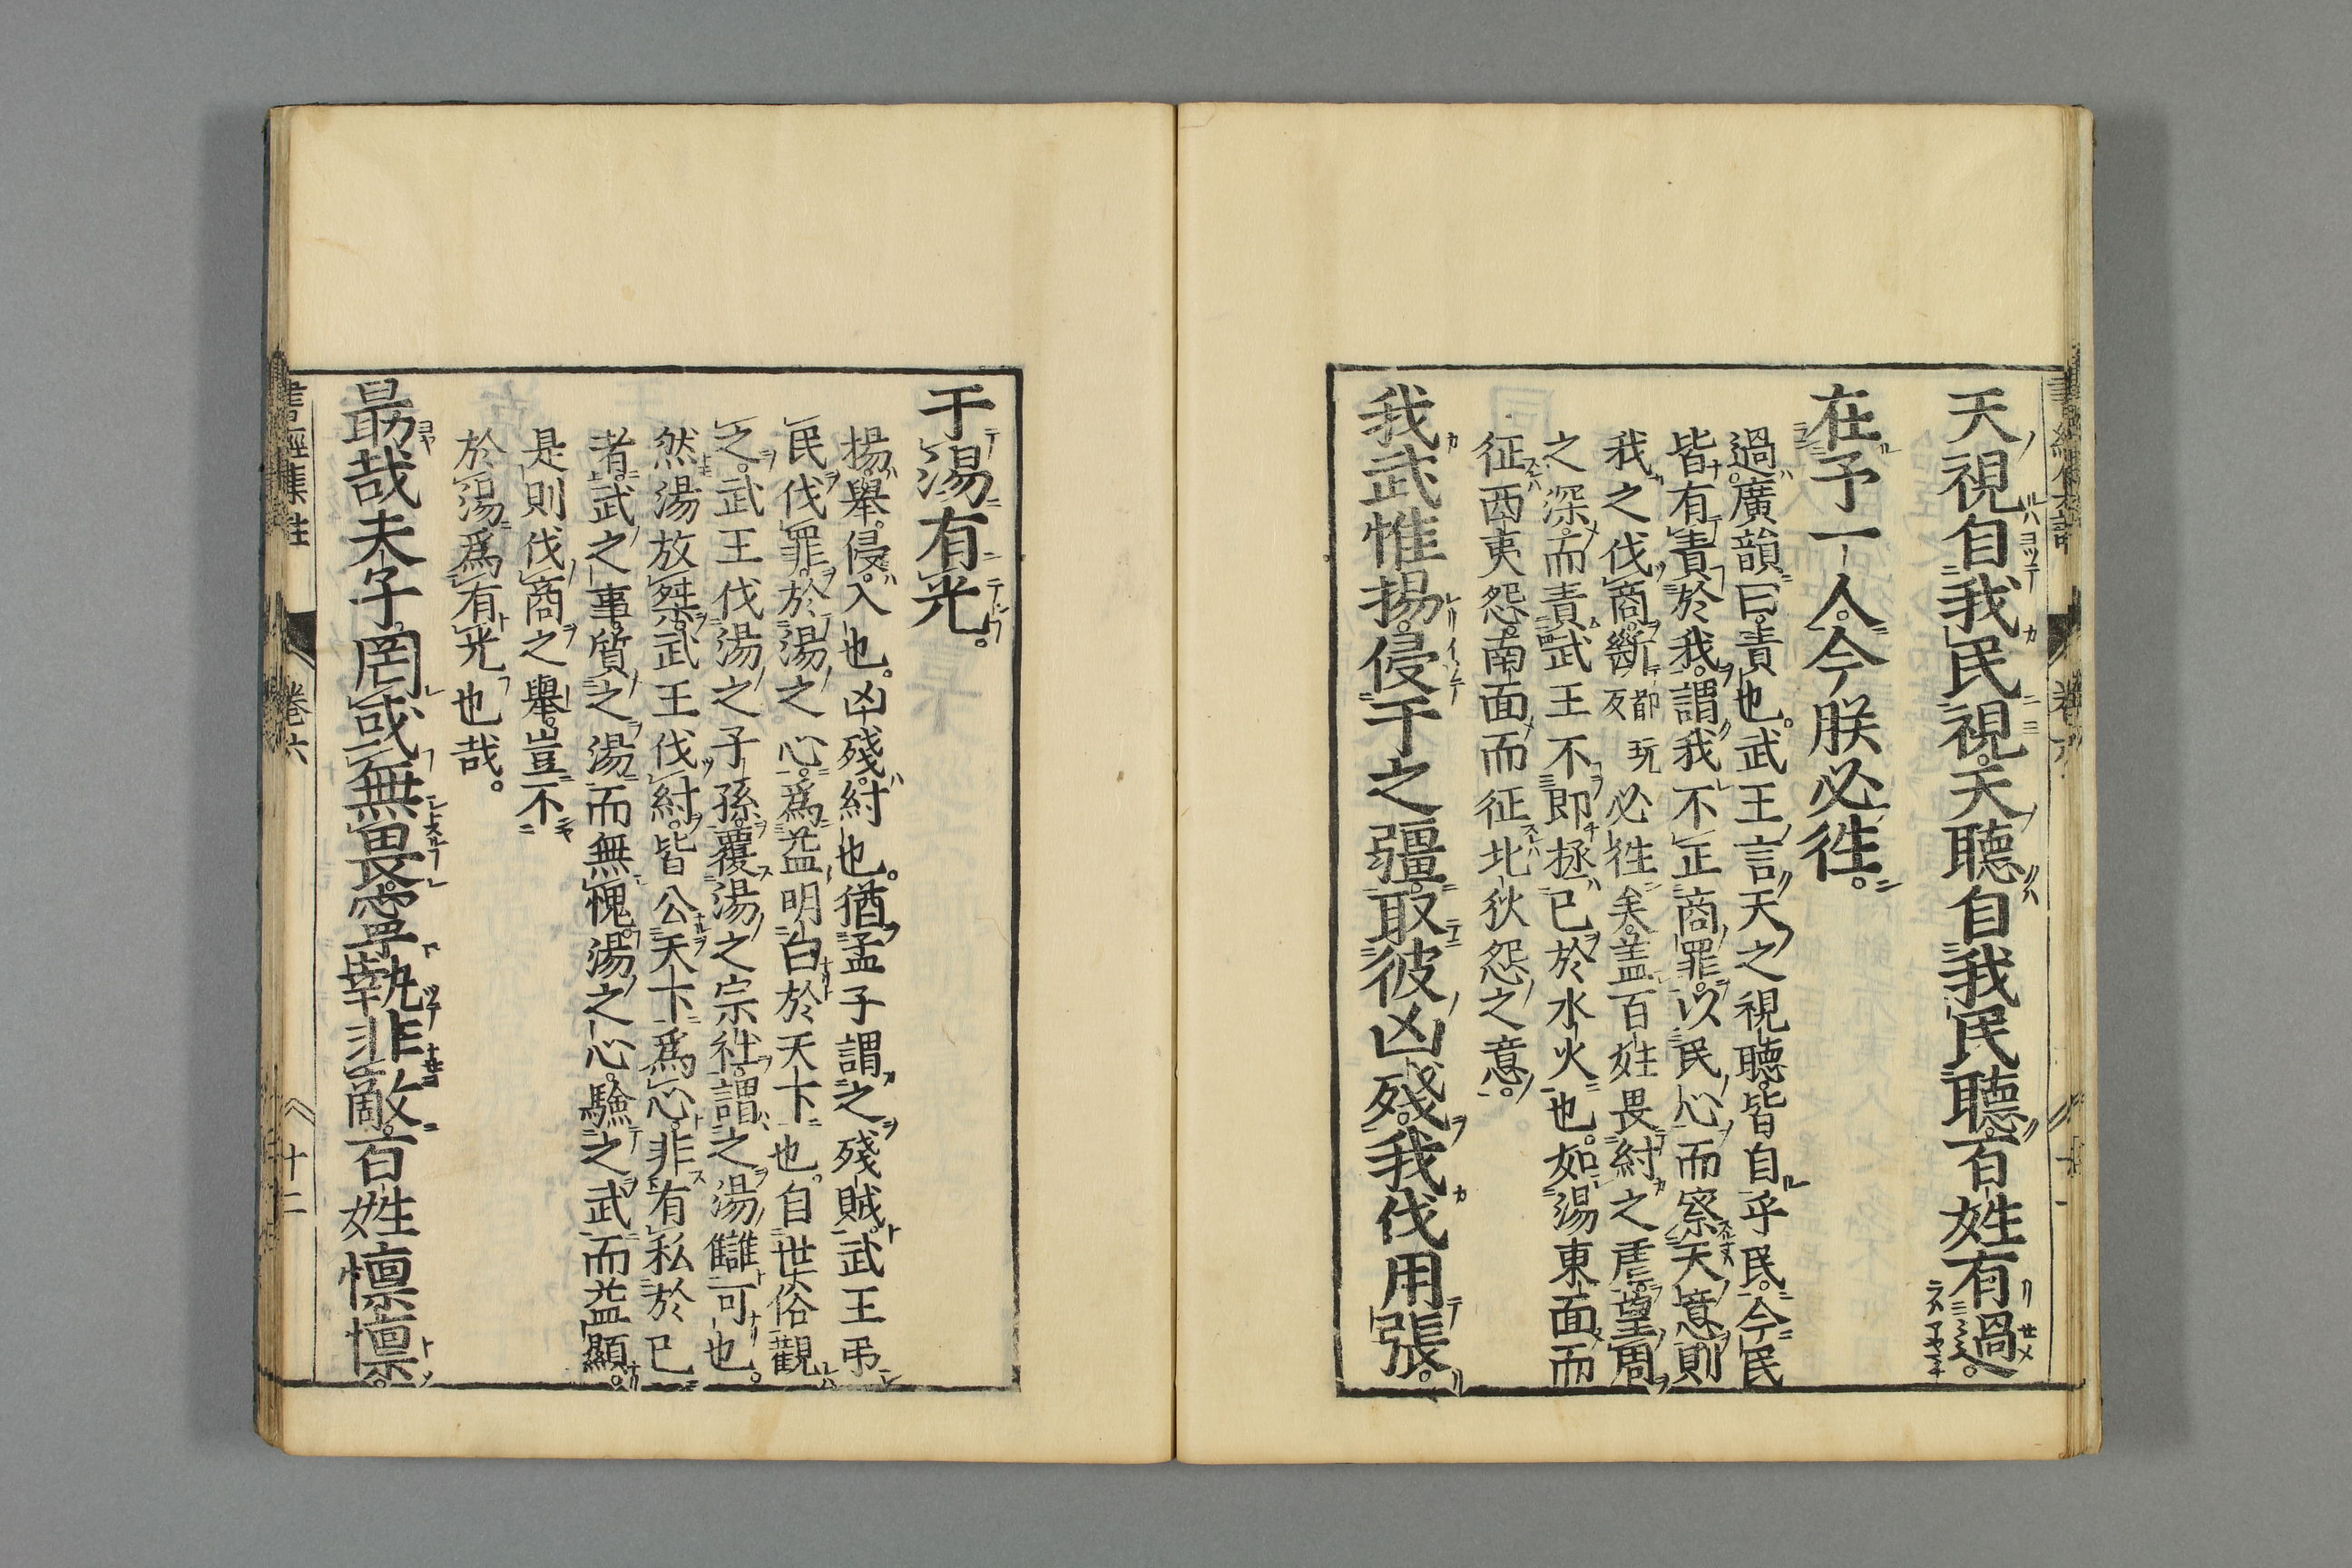 天視自我民視。天聽自我民聽。百姓有過。
在予一人。今朕必徃。
過。廣韻曰。責也。武王言天之視聽。皆自乎民。今民
皆有責於我。謂我不正商罪。以民心而察天意。則
我之伐商。斷都玩反必徃矣。盖百姓畏紂之虐。望周
之深。而責武王不即拯己於水火也。如湯東面而
征西夷怨。南面而征北狄怨之意。
我武惟揚。侵于之疆。取彼凶殘。我伐用張。
于湯有光。
揚。舉。侵。入也。凶殘。紂也。猶孟子謂之殘賊。武王弔
民伐罪。於湯之心。爲益明白於天下也。自世俗觀
之。武王伐湯之子孫。覆湯之宗社。謂之湯讎可也。
然湯放桀。武王伐紂。皆公天下爲心。非有私於己
者。武之事。質之湯而無愧。湯之心。驗之武而益顯。
是則伐商之舉。豈不
於湯爲有光也哉。
勗哉夫子。罔或無畏。寧執非敵。百姓懍懍。
書經集註 卷六 十二